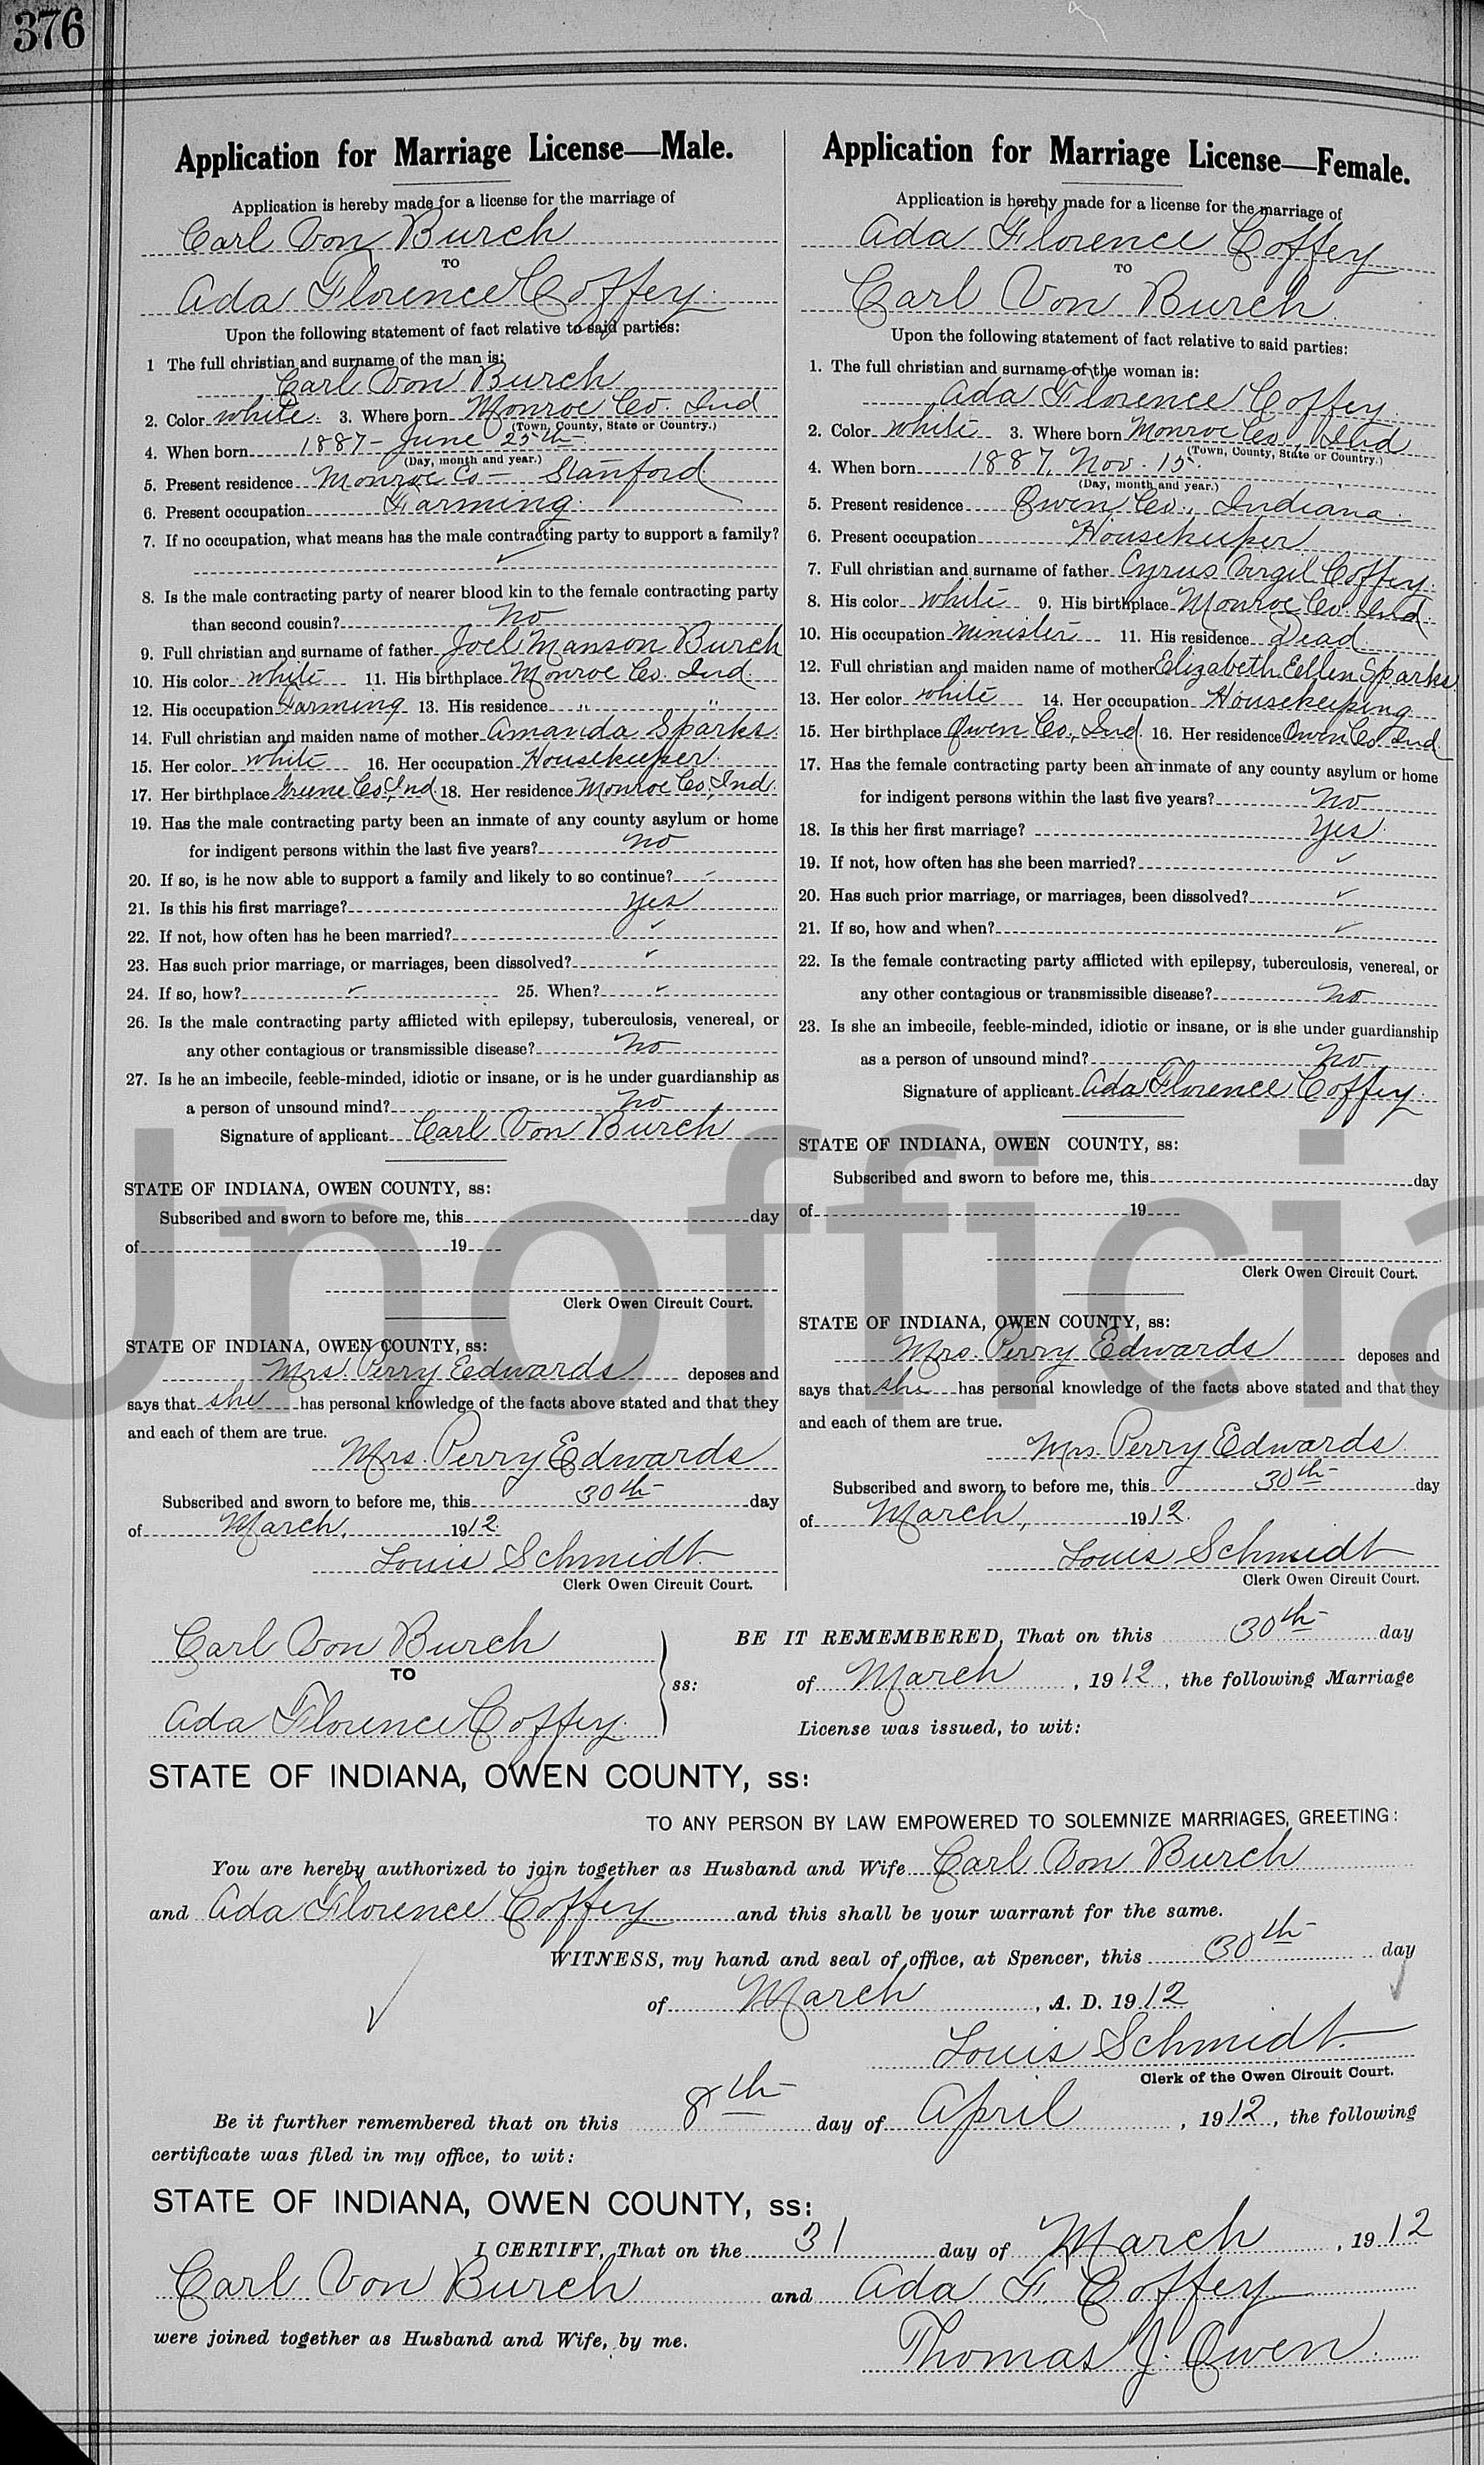 376
Application for Marriage License—Male.
Application is hereby made for a license for the marriage of
Carl Von Burch
TO
Ada Florence Coffey.
Upon the following statement of fact relative to said parties:
1 The full christian and surname of the man is:
Carl Von Burch
2. Color white. 3. Where born Monroe Co. Ind
(Town, County, State or Country.)
4. When born 1887 - June 25th -
(Day, month and year.)
5. Present residence Monroe Co - Stanford
6. Present occupation Farming.
7. If no occupation, what means has the male contracting party to support a family?
✓
8. Is the male contracting party of nearer blood kin to the female contracting party
than second cousin? No
9. Full christian and surname of father Joel Manson Burch
10. His color white 11. His birthplace Monroe Co. Ind.
12. His occupation Farming 13. His residence " "
14. Full christian and maiden name of mother Amanda Sparks.
15. Her color white 16. Her occupation Housekeeper.
17. Her birthplace Greene Co., Ind. 18. Her residence Monroe Co., Ind.
19. Has the male contracting party been an inmate of any county asylum or home
for indigent persons within the last five years? no
20. If so, is he now able to support a family and likely to so continue? -
21. Is this his first marriage? Yes
22. If not, how often has he been married? ✓
23. Has such prior marriage, or marriages, been dissolved? ✓
24. If so, how? ✓ 25. When? ✓
26. Is the male contracting party afflicted with epilepsy, tuberculosis, venereal, or
any other contagious or transmissible disease? No
27. Is he an imbecile, feeble-minded, idiotic or insane, or is he under guardianship as
a person of unsound mind? No
Signature of applicant Carl Von Burch
STATE OF INDIANA, OWEN COUNTY, ss:
Subscribed and sworn to before me, this day
of 19
Clerk Owen Circuit Court.
STATE OF INDIANA, OWEN COUNTY, ss:
Mrs. Perry Edwards deposes and
says that she has personal knowledge of the facts above stated and that they
and each of them are true.
Mrs. Perry Edwards
Subscribed and sworn to before me, this 30th day
of March, 1912.
Louis Schmidt
Clerk Owen Circuit Court.
Application for Marriage License—Female.
Application is hereby made for a license for the marriage of
Ada Florence Coffey
TO
Carl Von Burch.
Upon the following statement of fact relative to said parties:
1. The full christian and surname of the woman is:
Ada Florence Coffey.
2. Color white 3. Where born Monroe Co., Ind
(Town, County, State or Country.)
4. When born 1887, Nov. 15.
(Day, month and year.)
5. Present residence Owen Co., Indiana.
6. Present occupation Housekeeper
7. Full christian and surname of father Cyrus Virgil Coffey.
8. His color white 9. His birthplace Monroe Co. Ind.
10. His occupation minister 11. His residence Dead.
12. Full christian and maiden name of mother Elizabeth Eellen Sparks.
13. Her color white 14. Her occupation Housekeeping
15. Her birthplace Owen Co., Ind. 16. Her residence Owen Co. Ind.
17. Has the female contracting party been an inmate of any county asylum or home
for indigent persons within the last five years? no
18. Is this her first marriage? Yes
19. If not, how often has she been married? ✓
20. Has such prior marriage, or marriages, been dissolved? ✓
21. If so, how and when? ✓
22. Is the female contracting party afflicted with epilepsy, tuberculosis, venereal, or
any other contagious or transmissible disease? no
23. Is she an imbecile, feeble-minded, idiotic or insane, or is she under guardianship
as a person of unsound mind? No
Signature of applicant Ada Florence Coffey.
STATE OF INDIANA, OWEN COUNTY, ss:
Subscribed and sworn to before me, this day
of 19
Clerk Owen Circuit Court.
STATE OF INDIANA, OWEN COUNTY, ss:
Mrs. Perry Edwards deposes and
says that she has personal knowledge of the facts above stated and that they
and each of them are true.
Mrs. Perry Edwards.
Subscribed and sworn to before me, this 30th day
of March, 1912.
Louis Schmidt
Clerk Owen Circuit Court.
Unofficia
Carl Von Burch
TO
Ada Florence Coffey.
ss:
BE IT REMEMBERED, That on this 30th day
of March, 1912, the following Marriage
License was issued, to wit:
STATE OF INDIANA, OWEN COUNTY, ss:
TO ANY PERSON BY LAW EMPOWERED TO SOLEMNIZE MARRIAGES, GREETING:
You are hereby authorized to join together as Husband and Wife Carl Von Burch
and Ada Florence Coffey and this shall be your warrant for the same.
WITNESS, my hand and seal of office, at Spencer, this 30th day
of March, A. D. 1912
Louis Schmidt.
Clerk of the Owen Circuit Court.
Be it further remembered that on this 8th day of April, 1912, the following
certificate was filed in my office, to wit:
STATE OF INDIANA, OWEN COUNTY, ss:
I CERTIFY, That on the 31 day of March, 1912
Carl Von Burch and Ada F. Coffey
were joined together as Husband and Wife, by me.
Thomas J. Owen.